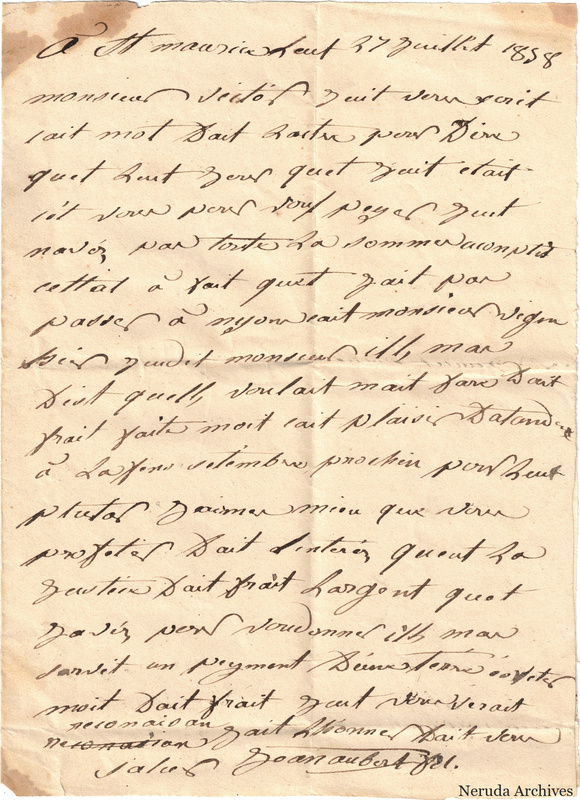 à St maurice Leut 27 Juillit 1858
monsieur victor Jeuit vous ecrit
cait mot Dait Laitre pour Dire
quet Leut Jour quet Jait etait
cét vous pour vous peyer Jeut
navéz par toute La somme
cettat à fait quet Jait par
passer à nyons cait monsieur
Jeudit monsieur ill, mar
Dist quell, voulait mait fare Dait
frait faite moit cait plaisir
à La fens setembre prochin pour Leut
plutar Jaimer mieu que vous
profeter Dait Linteréz queut La
Justice Dait frait Largent quet
Javéz pour voudonner ill, mar
servit un peyment
moit Dait frait Jeut vous verait
reconaisan
Jait Lhonner Dait vous
saluer Jean aubert fil.
Neruda Archives